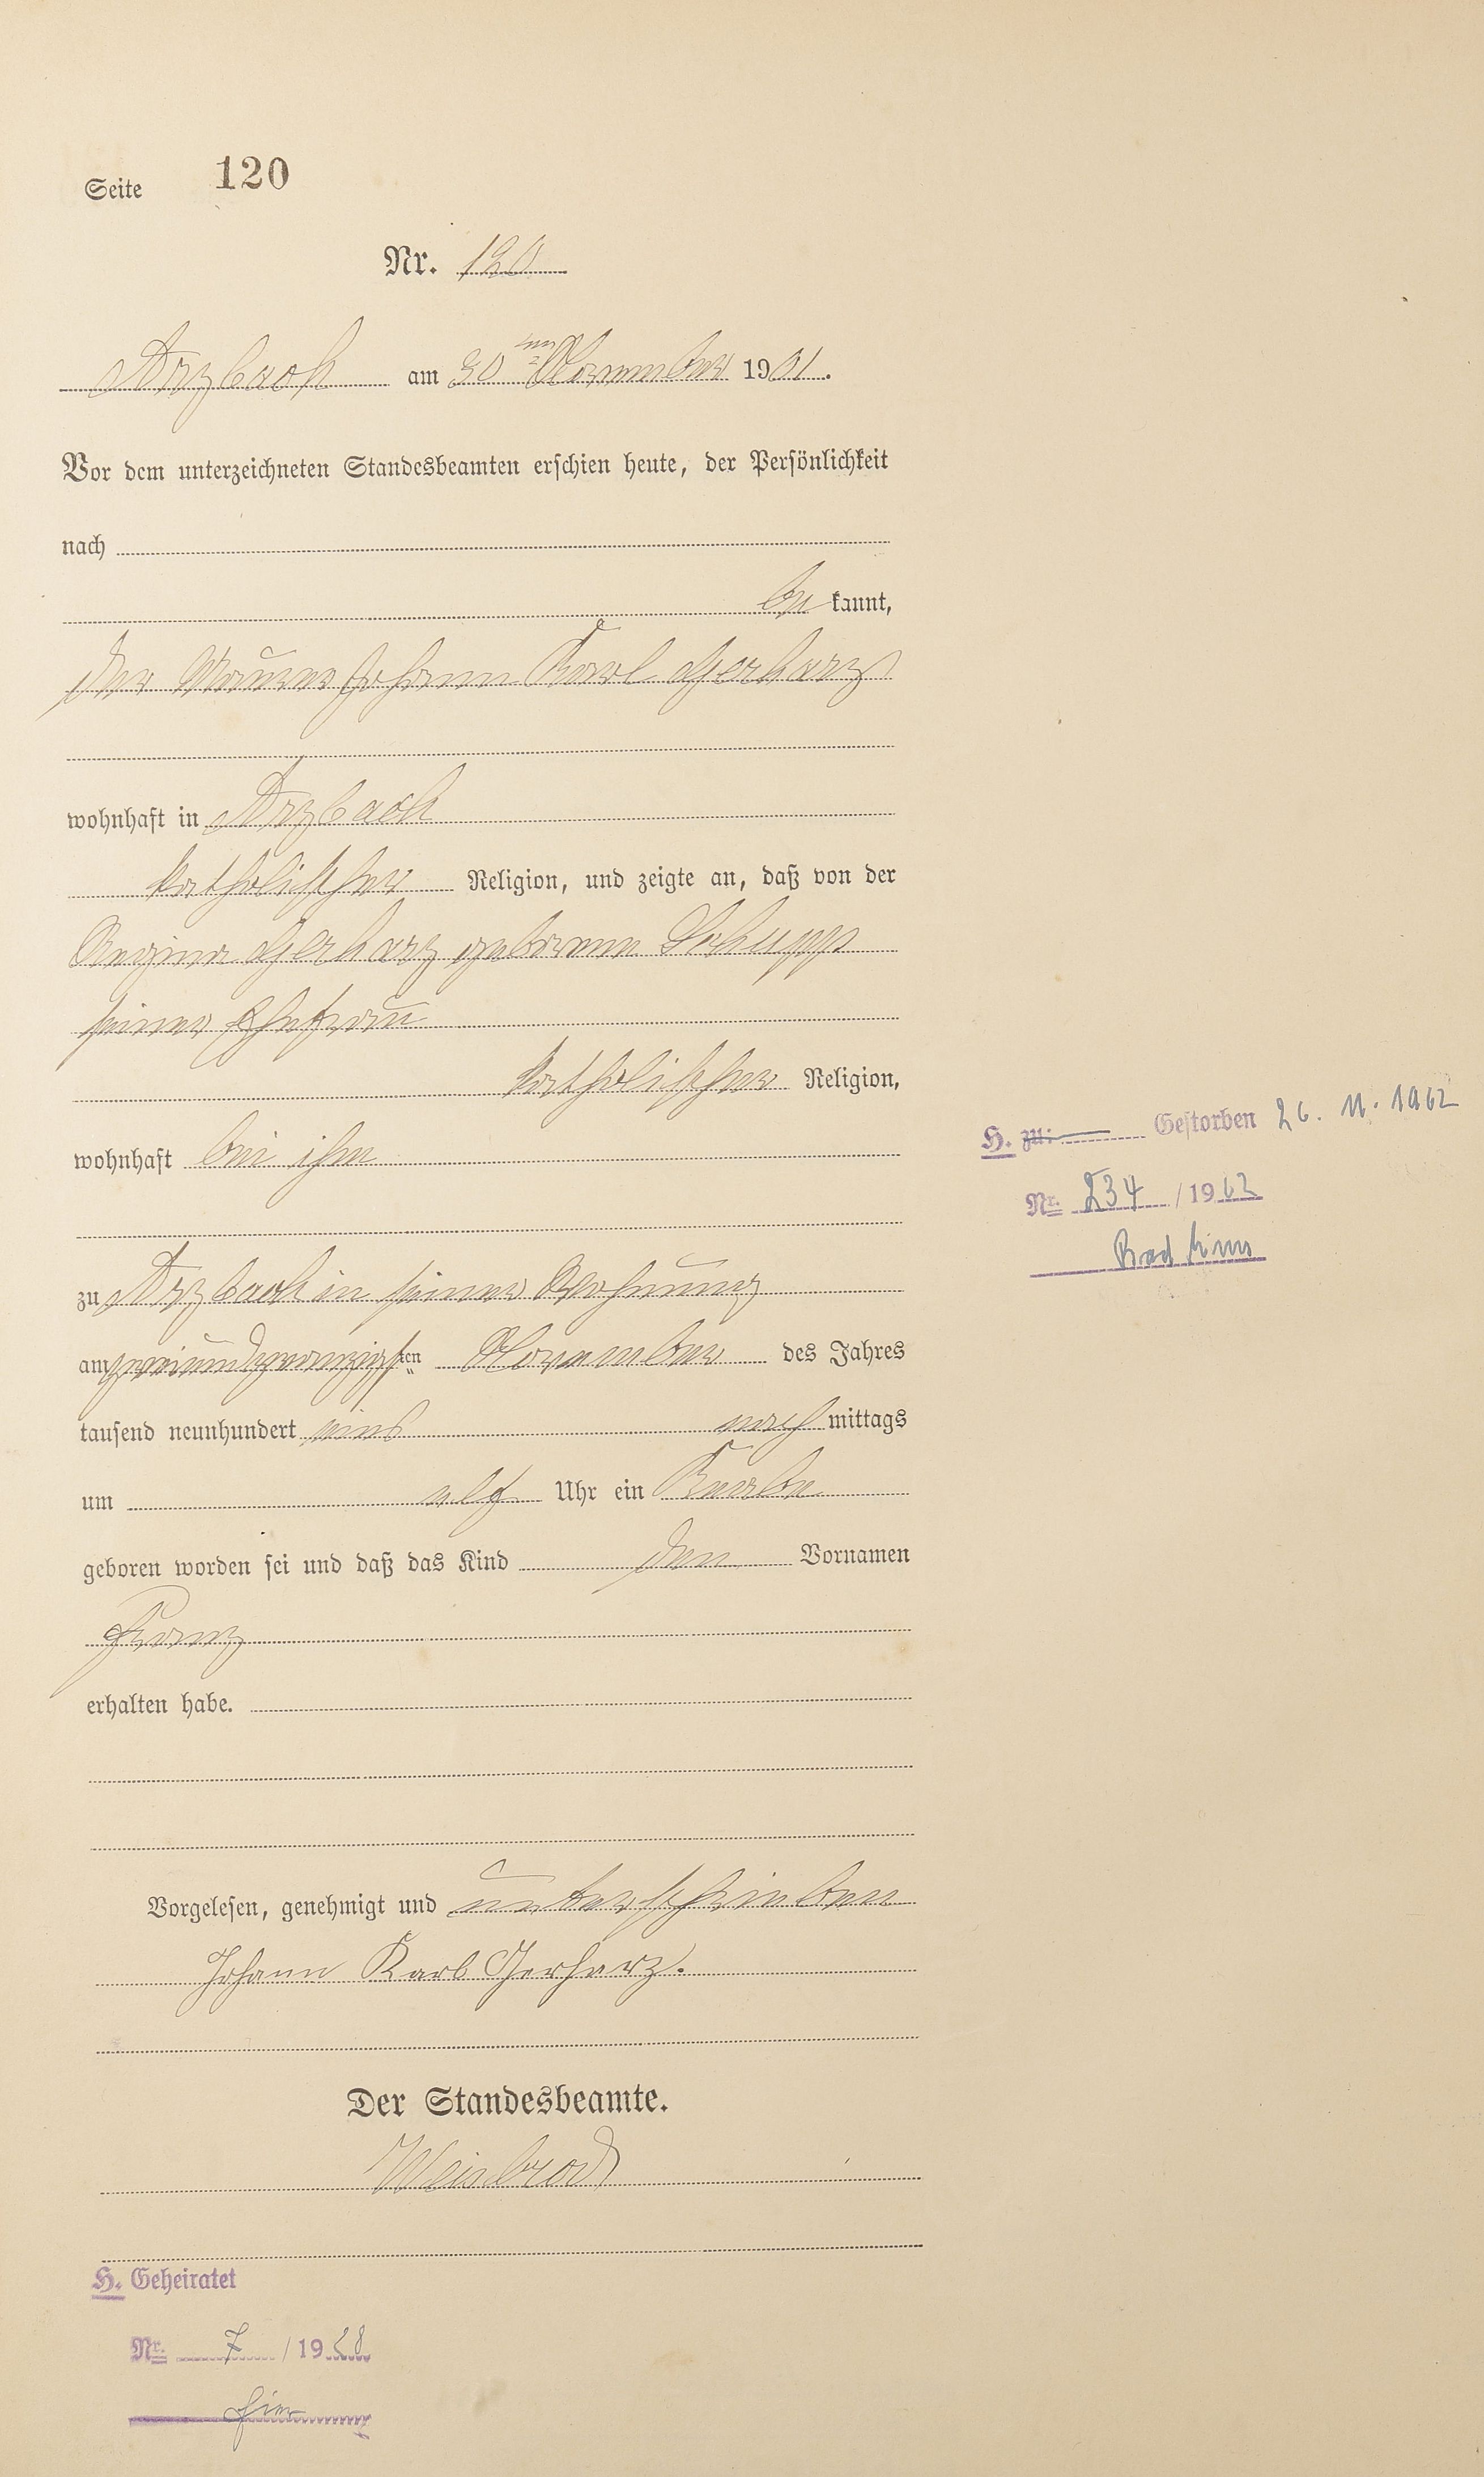 Seite 120
Nr. 120
Arzbach am 30ten November 1901.
Vor dem unterzeichneten Standesbeamten erschien heute, der Persönlichkeit
nach
be kannt,
der Maurer Johann Karl Gerharz
wohnhaft in Arzbach
katholischer Religion, und zeigte an, daß von der
Regina Gerharz geborenen Schupp
seiner Ehefrau
katholischer Religion,
wohnhaft bei ihm
zu Arzbach in seiner Wohnung
am zweiundzwanzigsten November des Jahres
tausend neunhundert eins nach mittags
um elf Uhr ein Knabe
geboren worden sei und daß das Kind den Vornamen
Franz
erhalten habe.
Vorgelesen, genehmigt und unterschrieben
Johann Karl Gerharz.
Der Standesbeamte.
Weisbrod
H. Geheiratet
Nr. 7 / 1928
hier
H. zu: Gestorben 26. 11. 1962
Nr. 234 / 1962
Bad Ems